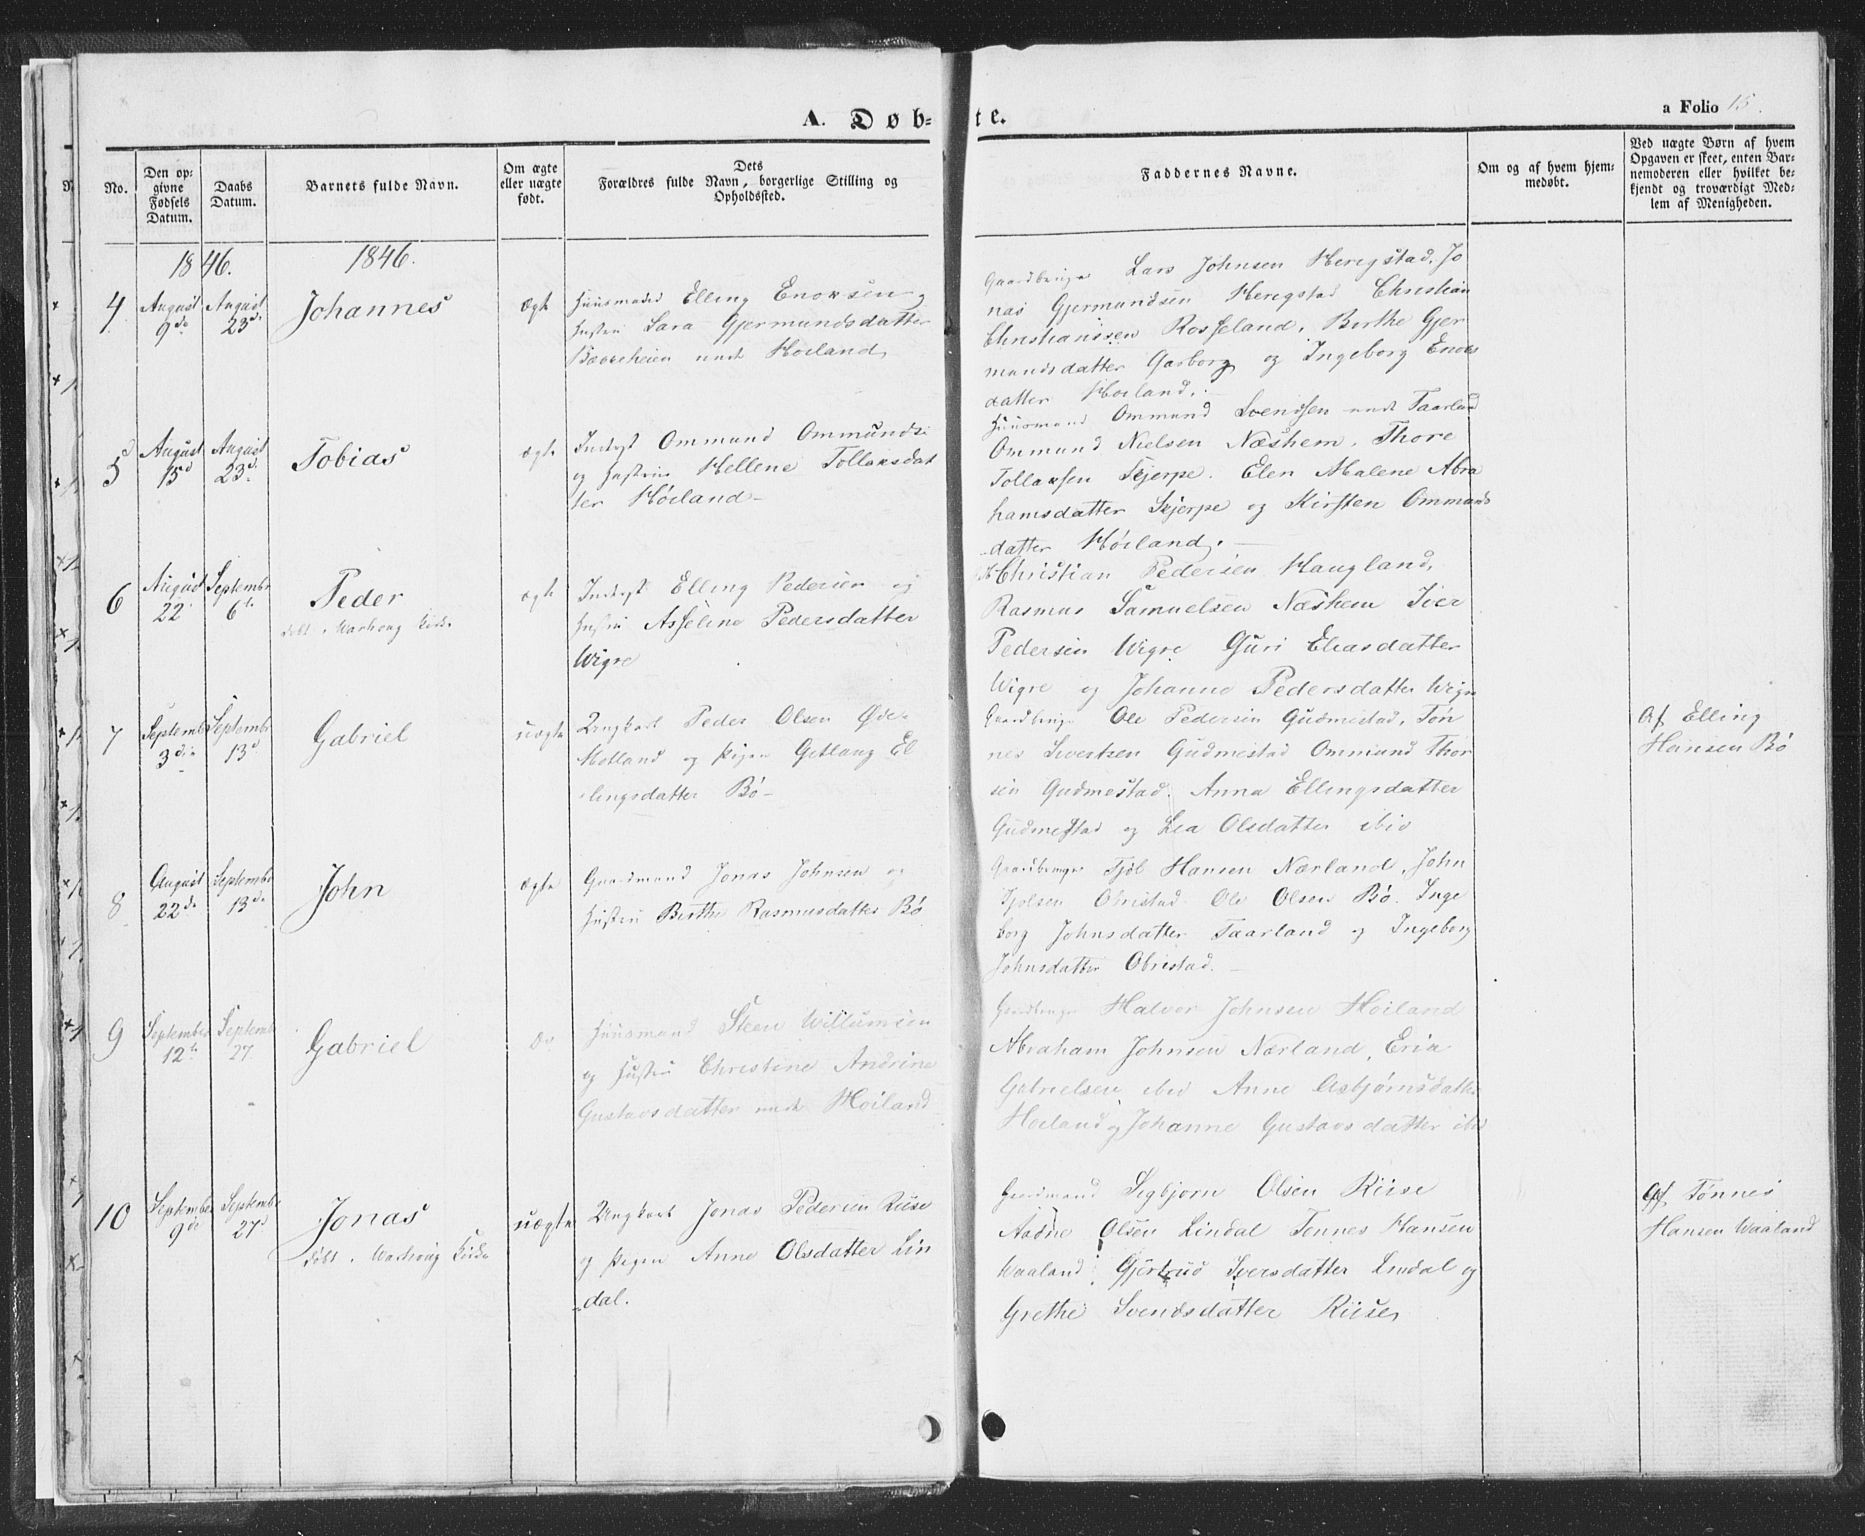 A. Døb-te.
a Folio 15.
No.
Den op-
givne
Fødsels
Datum.
Daabs
Datum.
Barnets fulde Navn.
Om ægte
eller uægte
født.
Dets
Forældres fulde Navn, borgerlige Stilling og
Opholdssted.
Faddernes Navne.
Om og af hvem hjem-
medøbt.
Ved uægte Børn af hvem
Opgaven er skeet, enten Bar-
nemoderen eller hvilket be-
kjendt og troværdigt Med-
lem af Menigheden.
1846.
1846.
4
August
9de
August
23d
Johannes
Ægte
Huusmand Elling Enoksen og
Hustru Sara Gjermundsdatter
undr Høiland
Gaardbruger Lars Johnsen Herigstad, Jo
nas Gjermundsen Herigstad Christian
Christianssen Rosseland, Berthe Gjer
mundsdatter Garborg og Ingeborg Enoks
datter Høiland.
5
August
15d
August
23d
Tobias
ægte
Inderst Ommund Ommunds:
og Hustru Hellene Tollaksdat
ter Høiland
Huusmand Ommund Svendsen undr Taarland
Ommund Nielsen Næshem. Thore
Tollaksen Skjerpe. Elen Malene Abra
hamsdatter Skjerpe og Kirsten Ommunds
datter Høiland.
6
August
22
September
6te
Peder
døbt i Varhoug Kirke
ægte
Inderst Elling Pedersen og
Hustru Asseline Pedersdatter
Wigre
Christian Pedersen Haugland,
Rasmus Samuelsen Næshem Iver
Pedersen Wigre Guri Eliasdatter
Wigre og Johanne Pedersdatter Wigre
7
September
3die
September
13d
Gabriel
uægte
Ungkarl Peder Olsen Øde-
Motland og Pigen Getlaug El
lingsdatter Bø
Gaardbruger Ole Pedersen Gudmestad, Tøn
nes Sivertsen Gudmestad Ommund Thor
sen Gudmestad. Anna Ellingsdatter
Gudmestad og Lea Olsdatter ibid
Af Elling
Hansen Bø
8
August
22de
September
13de
John
ægte
Gaardmand Jonas Johnsen og
Hustru Berthe Rasmusdatter Bø
Gaardbruger Tjøl Hansen Nærland, John
Tjølsen Obristad Ole Olsen Bø. Inge
borg Johnsdatter Taarland og Ingeborg
Johnsdatter Obristad.
9
September
12te
September
27.
Gabriel
do
Huusmand Steen Willumsen
og Hustru Christine Andrine
Gustavsdatter undr Høiland
Gaardbruger Halvor Johnsen Høiland
Abraham Johnsen Nærland, Erik
Gabrielsen ibid Anne Asbjørnsdatter
Høiland og Johanne Gustavsdatter ibid
10
September
9de
September
27d
Jonas
døbt i Varhoug Kirke
uægte
Ungkarl Jonas Pedersen Riise
og Pigen Anne Olsdatter Lin
dal.
Gaardmand Segbjørn Olsen Riise
Aadne Olsen Lindal Tønnes Hansen
Waaland. Gjertrud Iversdatter Lindal og
Grethe Svendsdatter Riise
Af Tønnes
Hansen Waaland